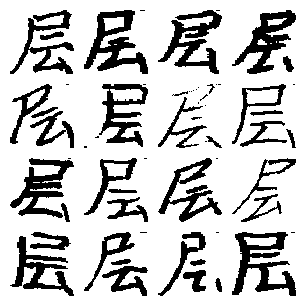 层层层层
层层层层
层层层层
层层层层